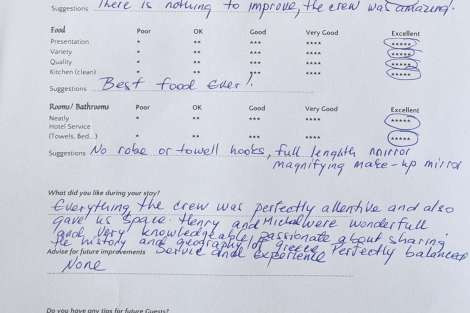 Suggestions There is nothing to improve, the crew was amazing.
Food Poor OK Good Very Good Excellent
Presentation * ** *** **** *****
Variety * ** *** **** *****
Quality * ** *** **** *****
Kitchen (clean) * ** *** **** *****
Suggestions Best food ever!
Rooms/ Bathrooms Poor OK Good Very Good Excellent
Neatly * ** *** **** *****
Hotel Service
(Towels, Bed...) * ** *** **** *****
Suggestions No robe or towell hooks, full lenghth mirror
magnifying make-up mirror
What did you like during your stay?
Everything the crew was perfectly attentive and also
gave us space. Henry and Michal were wonderfull
and very knowledgeable, passionate about sharing
the history and geography of greece
Service and experience perfectly balanced
Advise for future improvements
None
Do you have any tips for future Guests?